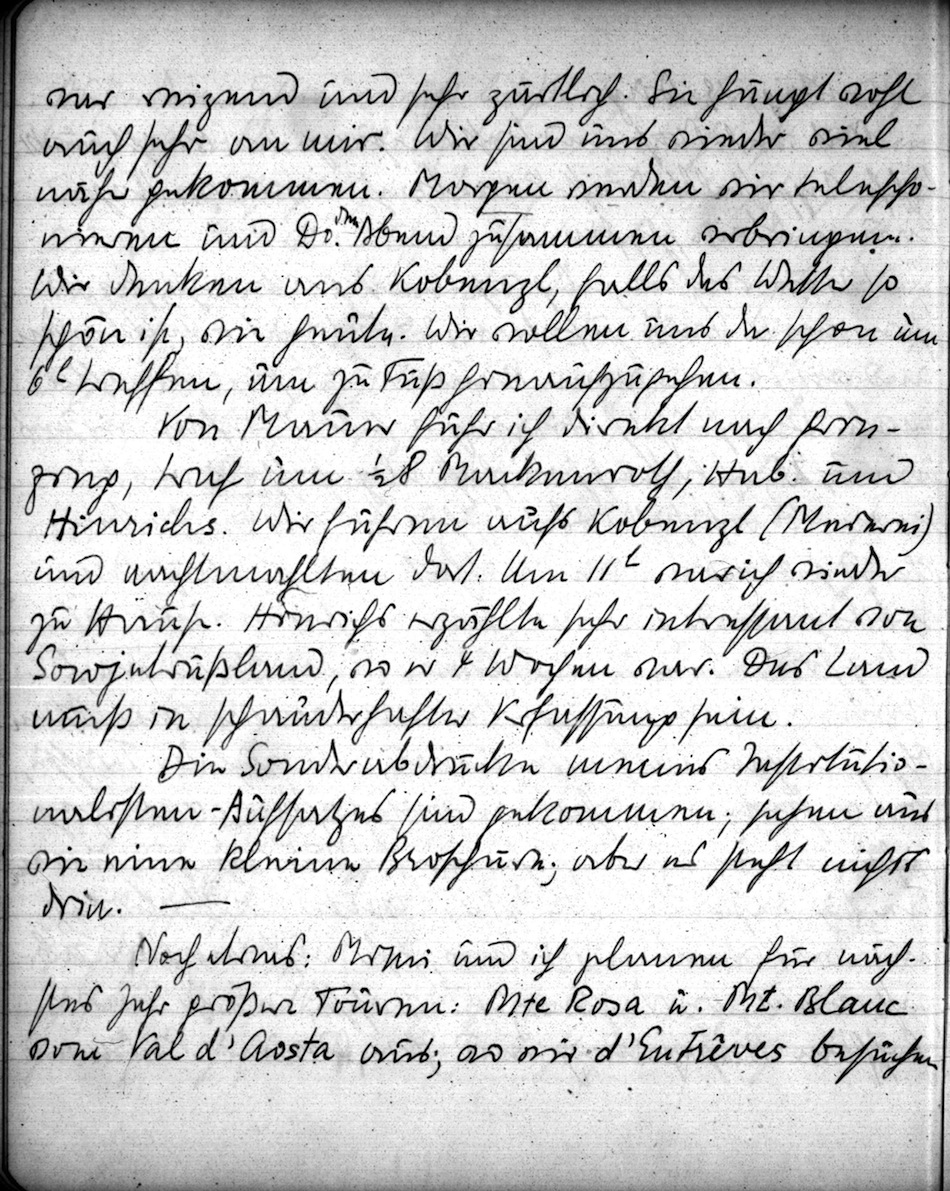 war reizend und sehr zärtlich. Sie hängt wohl
auch sehr an mir. Wir sind uns wieder viel
näher gekommen. Morgen werden wir telepho-
nieren und Do. den Abend zusammen verbringen.
Wir denken ans Kobenzl, falls das Wetter so
schön ist, wie heute. Wir wollen uns da schon um
6h treffen, um zu Fuß heraufzugehen.
Von Mauer fuhr ich direkt nach Grin-
zing, traf um ½8 und
Hinrichs. Wir fuhren aufs Kobenzl (Meierei)
und nachtmahlten dort. Um 11h war ich wieder
zu Hause. Hinrichs erzählte sehr interessant von
Sowjetrußland, wo er 4 Wochen war. Das Land
muß in schauderhafter Verfassung sein.
Die Sonderabdrucke meines Institutio-
nalisten-Aufsatzes sind gekommen; sehen aus
wie eine kleine Broschüre; aber es steht nichts
drin. —
Noch etwas: Mimi und ich planen für näch-
stes Jahr größere Touren: Mte Rosa u. Mt. Blanc
vom Val d'Aosta aus; wo wir d'Entrêves besuchen